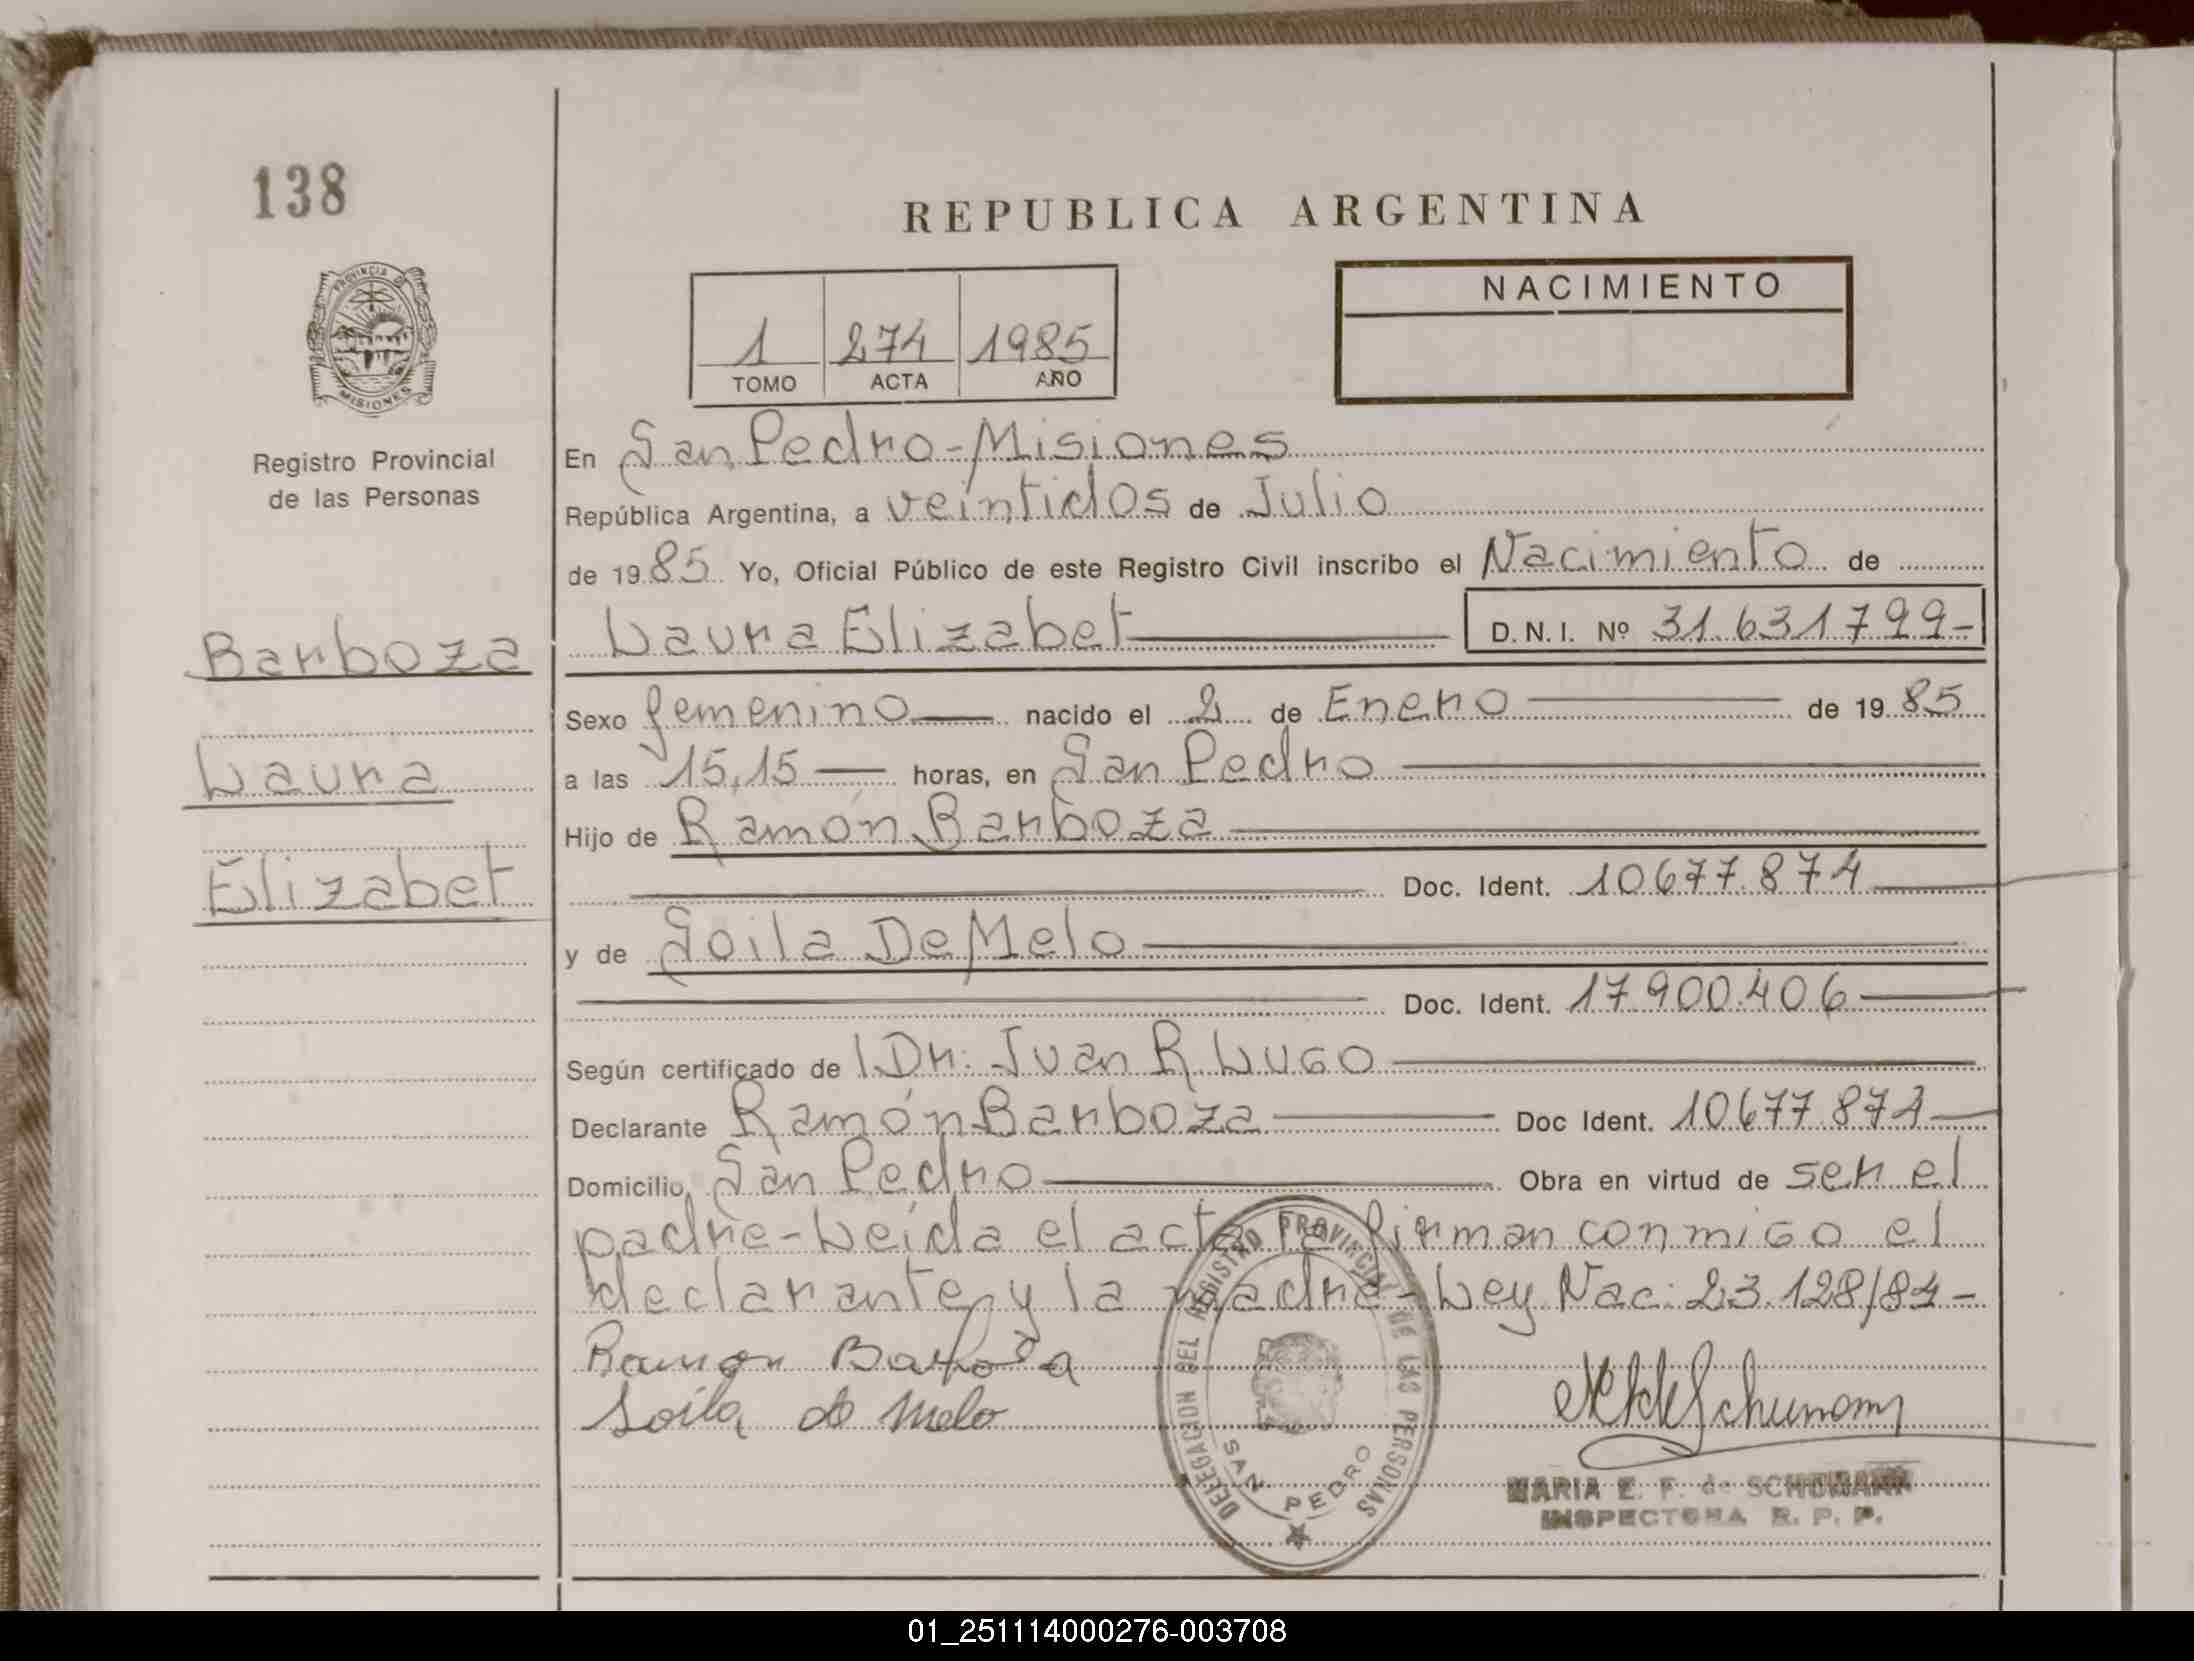 138
REPUBLICA ARGENTINA
NACIMIENTO
1 274 1985
TOMO ACTA AÑO
PROVINCIA DE
MISIONES
Registro Provincial
de las Personas
En San Pedro-Misiones
República Argentina, a veintidos de Julio
de 1985 Yo, Oficial Público de este Registro Civil inscribo el Nacimiento de
Barboza
Laura Elizabet D.N.I. Nº 31.631799-
Sexo femenino nacido el 2 de Enero de 1985
Laura
a las 15,15 horas, en San Pedro
Hijo de Ramón Barboza
Elizabet
Doc. Ident. 10677.874
y de Soila De Melo
Doc. Ident. 17.900.406
Según certificado de Dr: Juan R. Lugo
Declarante Ramón Barboza Doc Ident. 10677.874
Domicilio, San Pedro Obra en virtud de ser el
padre-Leída el acta la firman conmigo el
declarante y la madre-Ley Nac: 23.128/84-
Ramon Barboza
Soila de Melo
DELEGACION DEL REGISTRO PROVINCIAL DE LAS PERSONAS
SAN PEDRO
MARIA E. F. de SCHUMANN
INSPECTORA R. P. P.
01_251114000276-003708